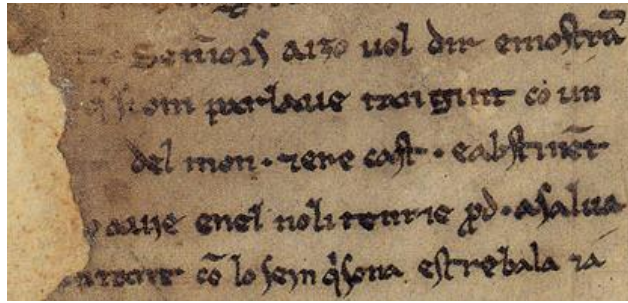 Seniors aizo uol dir emostrā
q̄ si om parlaue tan gint cō un
del mon · 7 ere cast · eabstinēt
auie enel noli tenrie ꝓd · asalua
cō lo sein q̇ sona estrebala ia